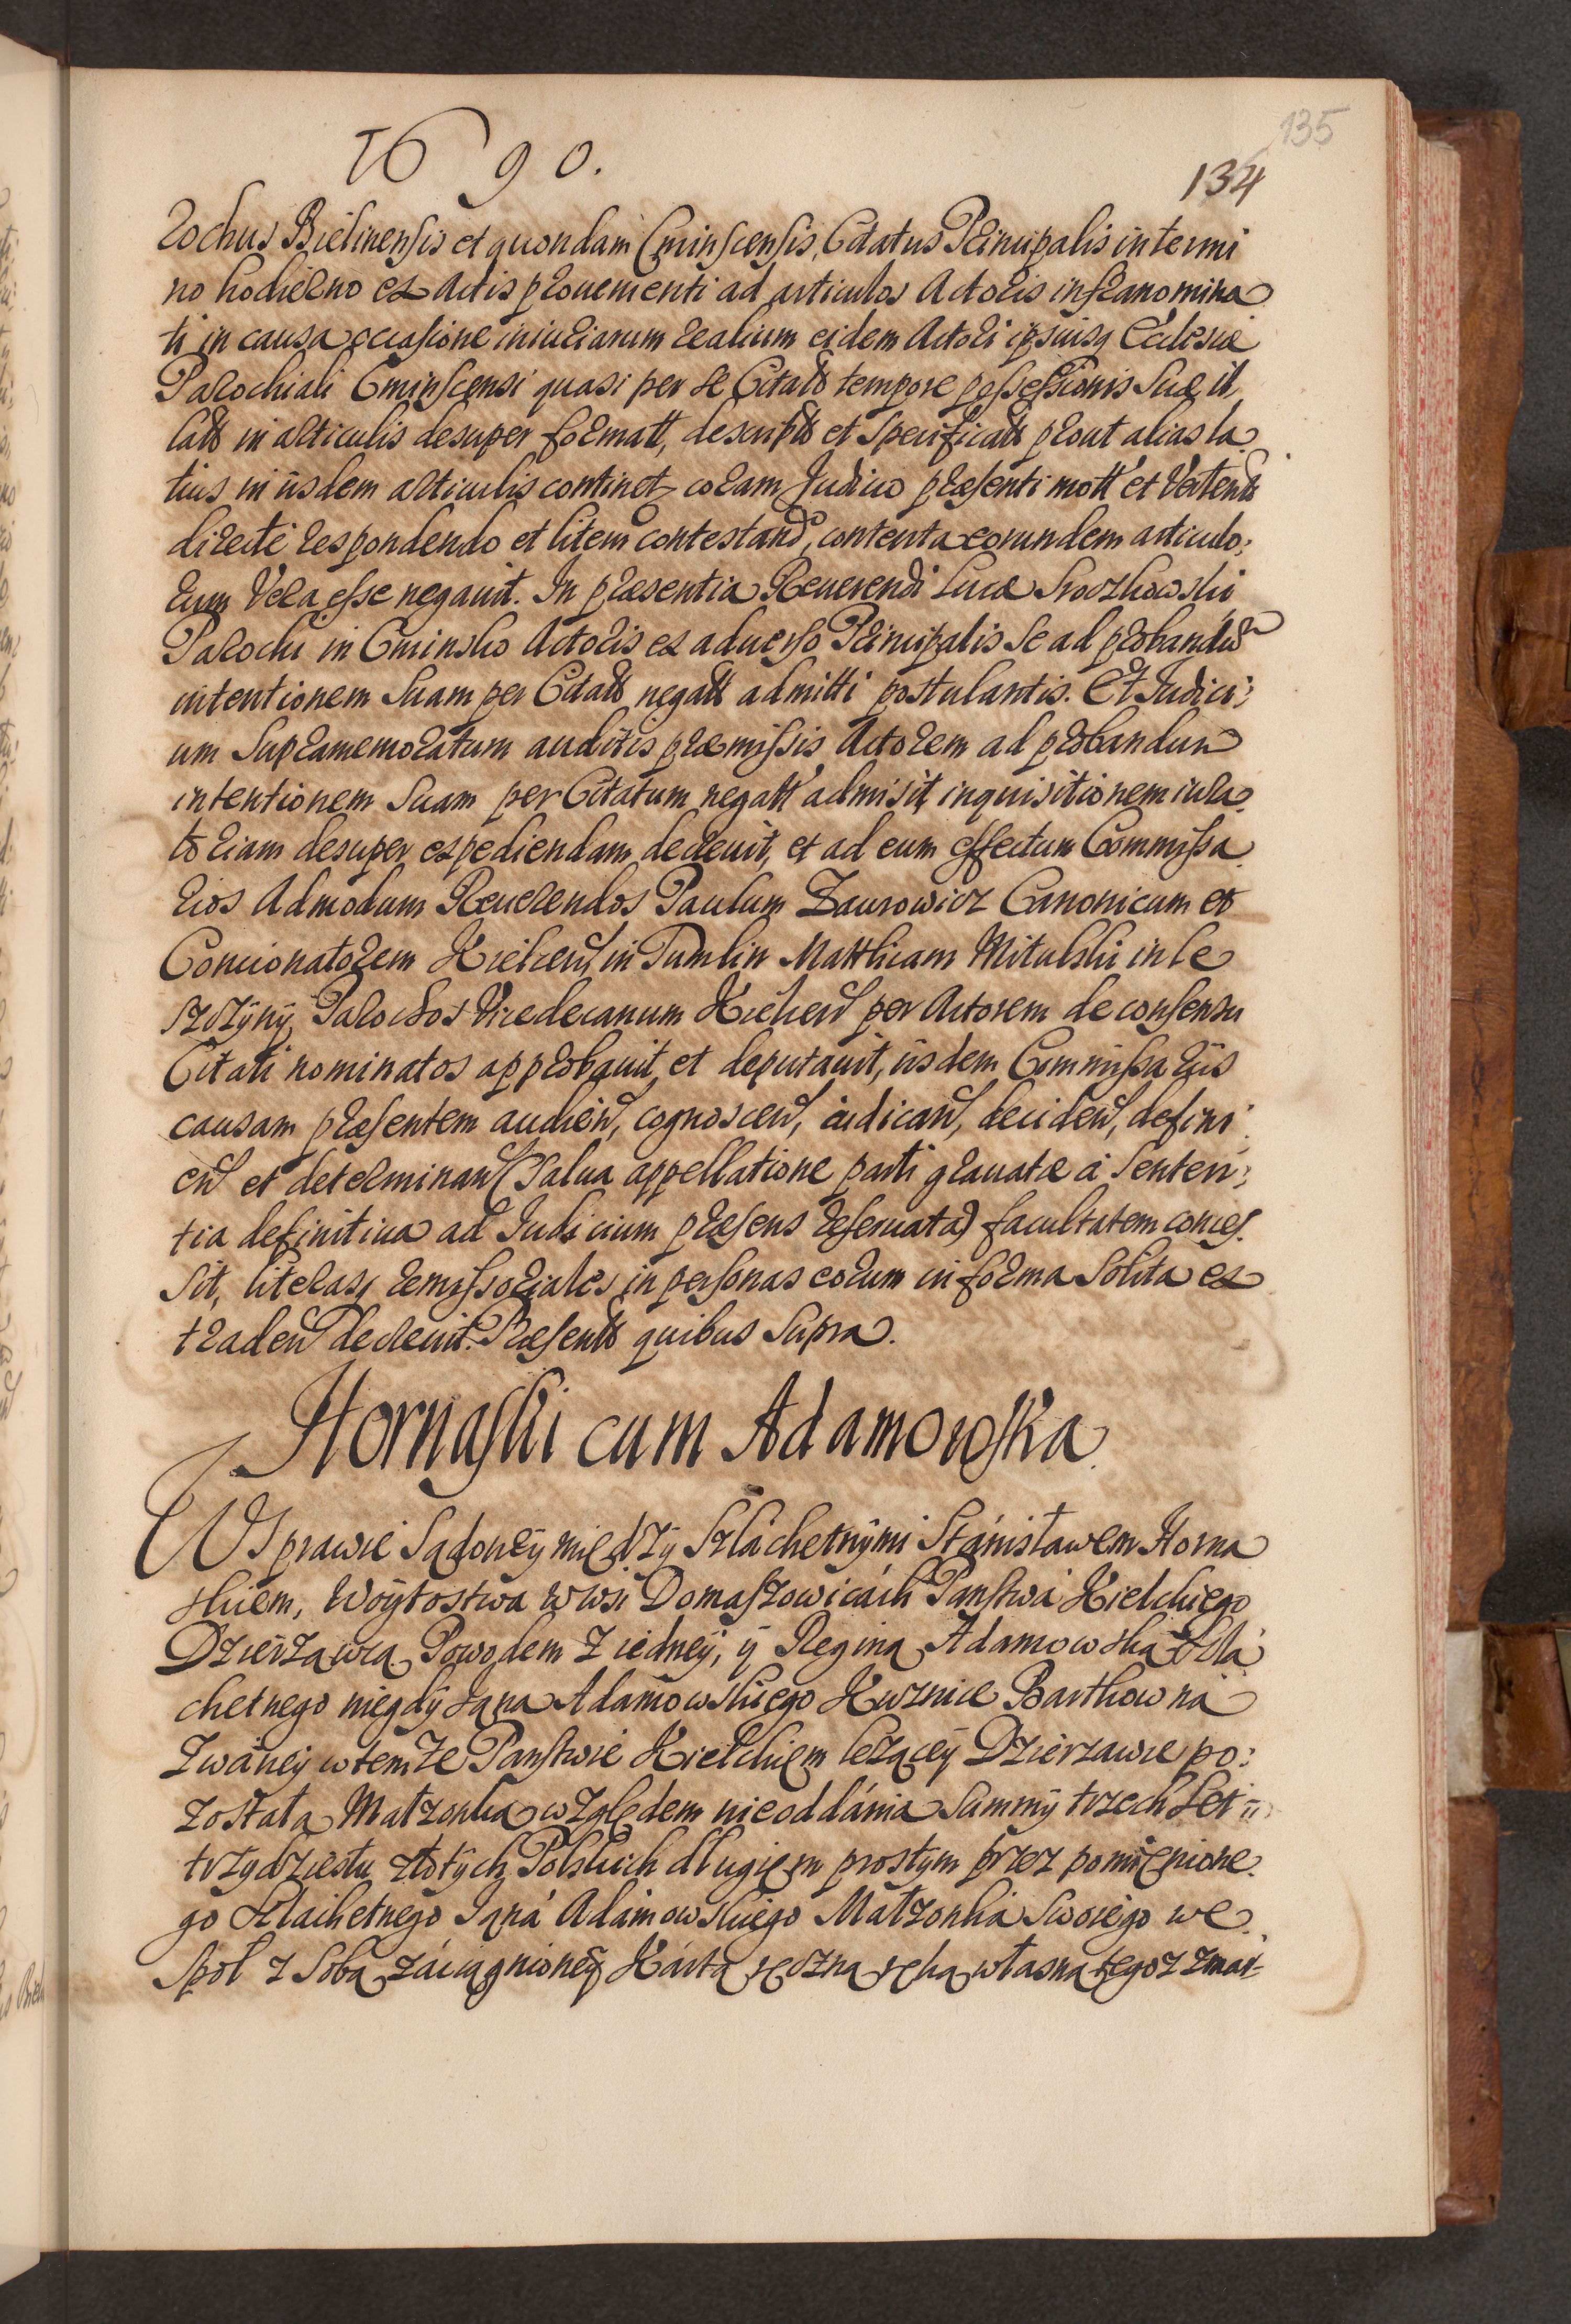 135
1690.
134
rochus Bielinensis et quondam Cminscensis, Citatus Principalis in termi
no hodierno ex Actis prouenienti ad articulos Actoris infranomina
ti in causa occasione iniuriarum realium eidem Actori ipsiusq Ecclesiæ
Parochiali Cminscensi quasi per se Citatt tempore possessionis suæ il
latt in articulis desuper formatt, descriptt et specificatt prout alias la
tius in iisdem articulis continet coram Judicio præsenti mott et Vertentt
directe respondendo et litem contestando, contenta eorundem articulo:
rum Vera esse negauit. In præsentia Reuerendi Lucæ Sroczkowski
Parochi in Cminsko Actoris ex aduerso Principalis se ad probandū
intentionem suam per Citatt negatt admitti postulantis. Et Judici:
um supramemoratum auditis præmissis Actorem ad probandum
intentionem suam per Citatum negatt admisit inquisitionem iura
toriam desuper expediendam decreuit, et ad eum effectum Commissa
rios Admodum Reuerendos Paulum Zaurowicz Canonicum et
Concionatorem Kielcen, in Tumlin Matthiam Mitulski in Le
szczyny Parochos Vicedecanum Kielcen per Actorem de consensu
Citati nominatos approbauit et deputauit, iisdem Commissariis
causam præsentem audien, cognoscen, iudican, deciden, defini
en et determinan (salua appellatione parti grauatæ a senten:
tia definitiua ad Judicium præsens reseruata) facultatem conces
sit, literasq remissoriales in personas eorum in forma solita ex
traden decreuit. Præsentt quibus supra.
Hornaski cum Adamowska.
W Sprawie Sądowey między Szláchetnymi Stánisławem Horna
skiem, Woytostwa w wsi Domaszowicách Panstwá Kielckiego
Dzierzawcą Powodem z iedney, y Reginą Adamowską Szlá
chetnego niegdy Jana Adamowskiego Kuznice Barthow ná
zwáney w temze Panstwie Kielckiem lezącey Dzierzawce po:
zostałą Małzonką względem nieoddánia Summy trzech Set ii
trzydziestu złotych Polskich długiem prostym przez pomienione
go Szlachetnego Janá Adámowskiego Małzonká Swoiego we
społ z sobą záciągnioney Kártą ręczną ręką własną tegoz zmar: